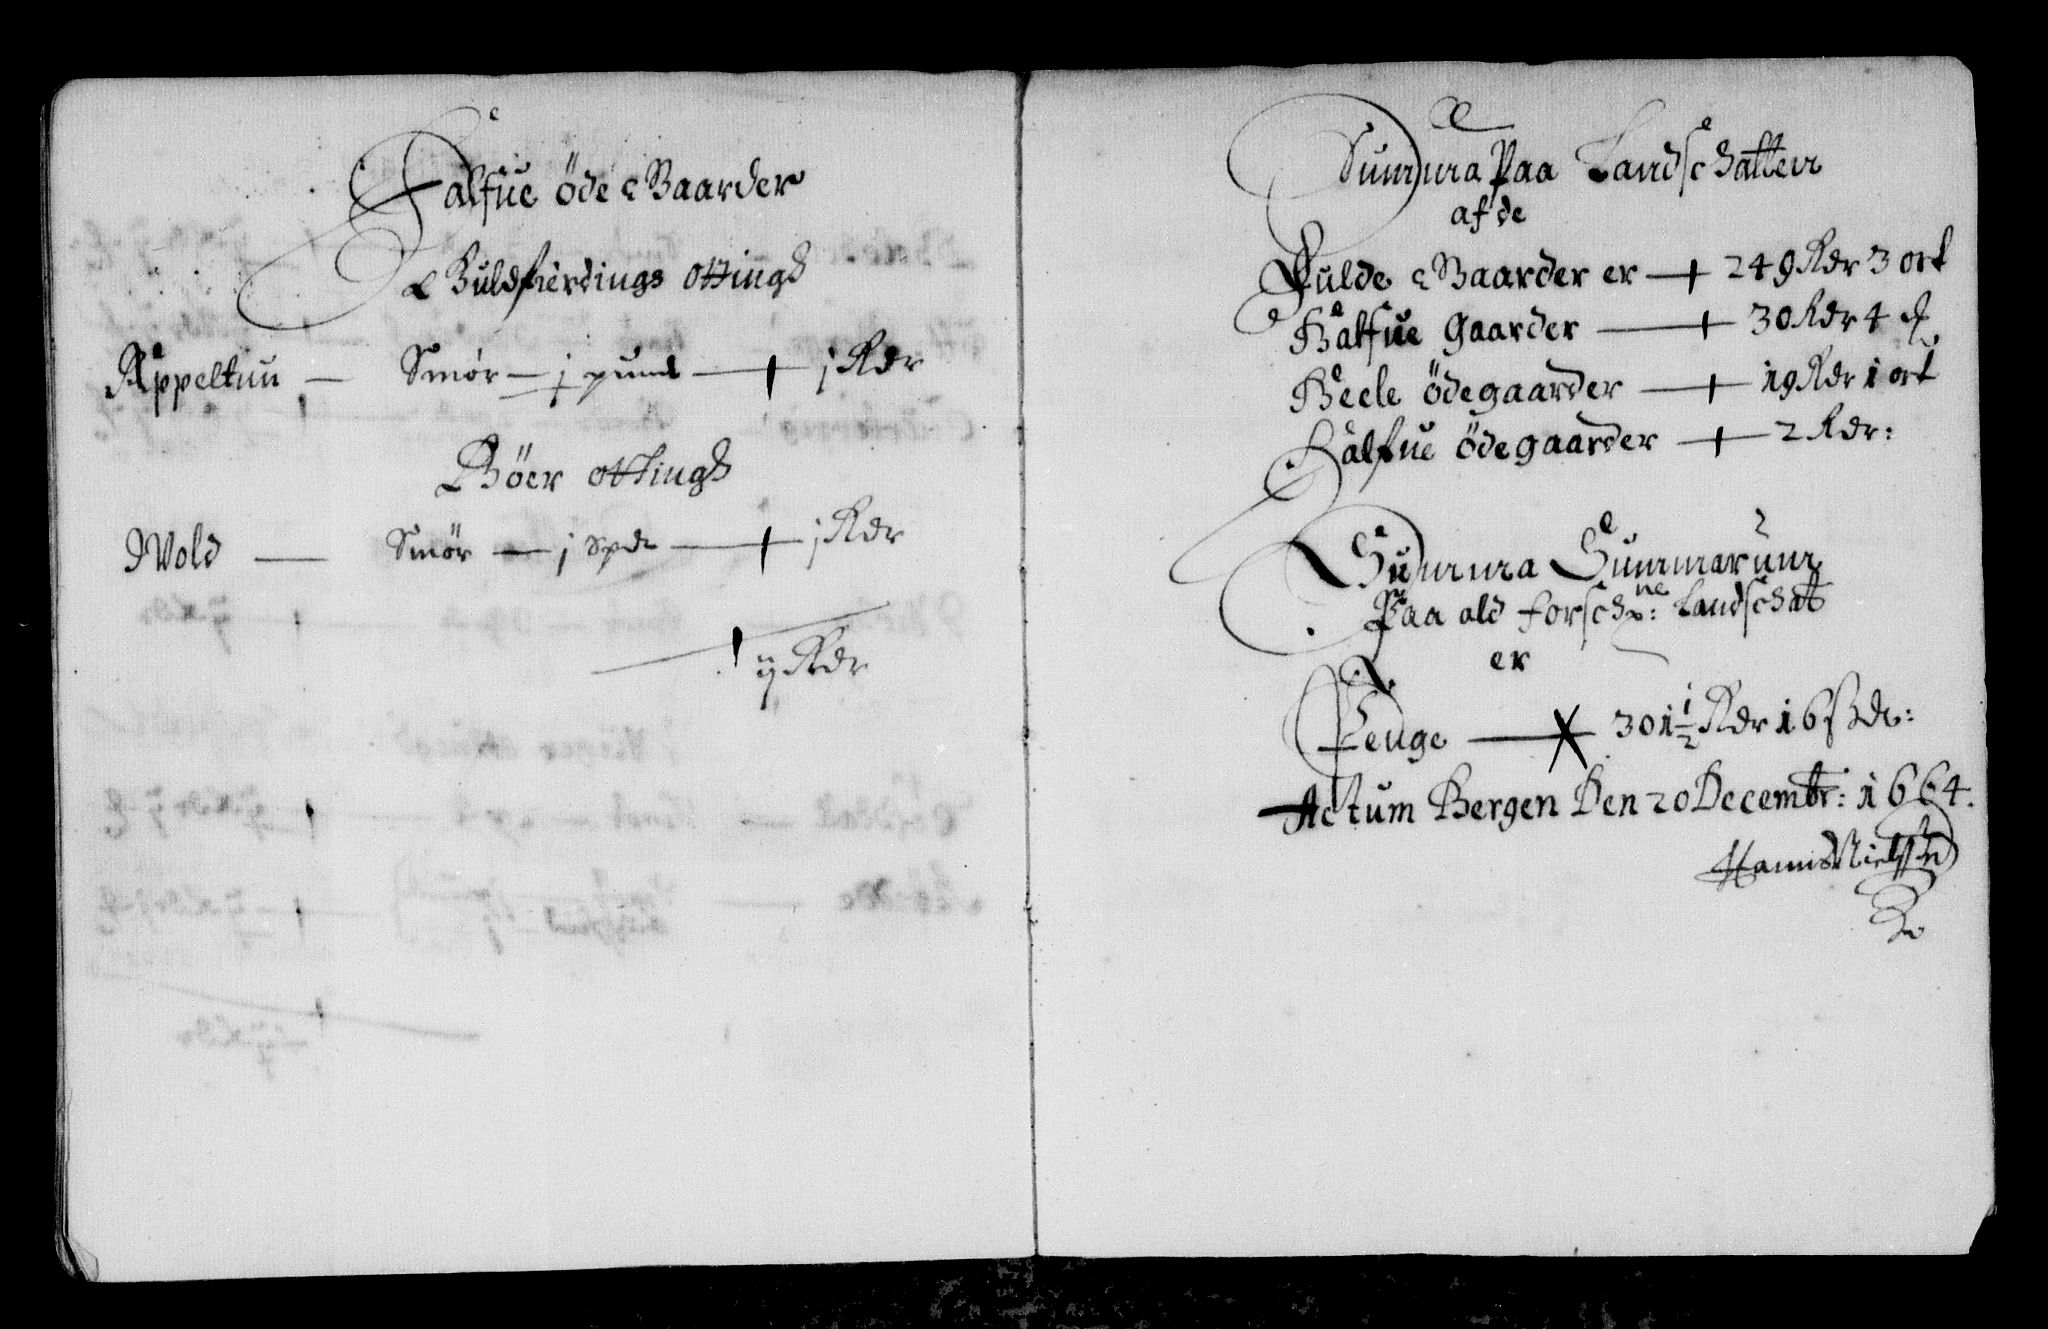 Halfue öde Gaarder
Guldfierdings ottingh
Appeltun — Smör — j pund — j Rdr
Böer ottingh
Wold — Smör — j spd — j Rdr
ij Rdr
Summa Paa Landschatten
af de
Fulde Gaarder er — 249 Rdr 3 ort
Halfue Gaarder — 30 Rdr 4 ß
Heele Ödegaarder — 19 Rdr 1 ort
Halfue Ödegaarder — 2 Rdr:
Summa Summarum
Paa ald forschne: Landschat
er
Penge — 301½ Rdr 16 ß
Actum Bergen Den 20 Decembr: 1664.
Hanns Nielssen